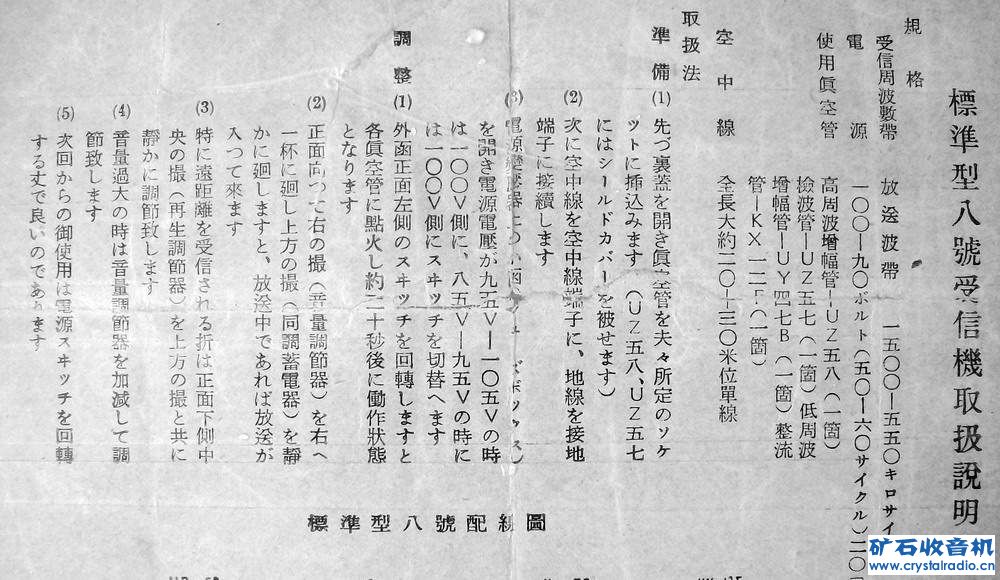 標準型八號受信機取扱說明
規格
受信周波數帶 放送波帶 一五〇〇—五五〇キロサイ
電源 一〇〇—九〇ボルト(五〇—六〇サイクル)二〇
使用眞空管 高周波增幅管—UZ五八(一箇)
檢波管—UZ五七(一箇)低周波
增幅管—UY四七B(一箇)整流
管—KX一二F(一箇)
空中線 全長大約二〇—三〇米位單線
取扱法
準備 (1) 先づ裏蓋を開き眞空管を夫々所定のソケ
ツトに揷込みます(UZ五八、UZ五七
にはシールドカバーを被せます)
(2) 次に空中線を空中線端子に、地線を接地
端子に接續します
(3) 電源變壓器に
を開き電源電壓が九五V—一〇五Vの時
は一〇〇V側に、八五V—九五Vの時に
は一〇〇V側にスヰツチを切替へます
調整 (1) 外函正面左側のスヰツチを回轉しますと
各眞空管に點火し約二十秒後に働作狀態
となります
(2) 正面向つて右の撮(音量調節器)を右へ
一杯に廻し上方の撮(同調蓄電器)を靜
かに廻しますと、放送中であれば放送が
入つて來ます
(3) 特に遠距離を受信される折は正面下側中
央の撮(再生調節器)を上方の撮と共に
靜かに調節致します
(4) 音量過大の時は音量調節器を加減して調
節致します
(5) 次回からの御使用は電源スヰッチを回轉
する丈で良いのであります
標準型八號配線圖
矿石收音机
www.crystalradio.cn